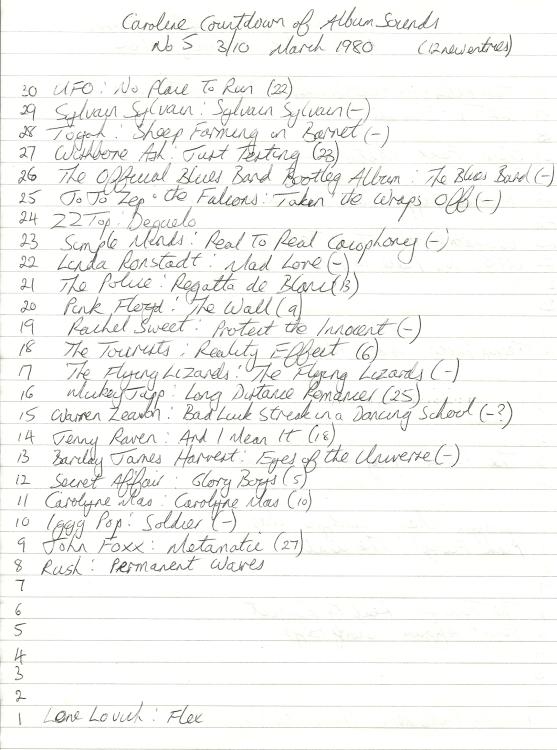 Caroline Countdown of Album Sounds
No 5 3/10 March 1980 (12 new entries)
30 UFO : No Place To Run (22)
29 Sylvain Sylvain : Sylvain Sylvain (-)
28 Toyah : Sheep Farming in Barnet (-)
27 Wishbone Ash : Just Testing (23)
26 The Official Blues Band Bootleg Album : The Blues Band (-)
25 Jo Jo Zep & the Falcons : Taken the Wraps Off (-)
24 ZZ Top : Deguelo
23 Simple Minds : Real To Real Cacophony (-)
22 Linda Ronstadt : Mad Love (-)
21 The Police : Regatta de Blanc (13)
20 Pink Floyd : The Wall (9)
19 Rachel Sweet : Protect the Innocent (-)
18 The Tourists : Reality Effect (6)
17 The Flying Lizards : The Flying Lizards (-)
16 Mickey Jupp : Long Distance Romancer (25)
15 Warren Zeavon : Bad Luck Streak in a Dancing School (-?)
14 Genny Raven : And I Mean It (18)
13 Barclay James Harvest : Eyes of the Universe (-)
12 Secret Affair : Glory Boys (5)
11 Carolyne Mas : Carolyne Mas (10)
10 Iggy Pop : Soldier (-)
9 John Foxx : Metamatic (27)
8 Rush : Permanent Waves
7
6
5
4
3
2
1 Lene Lovich : Flex